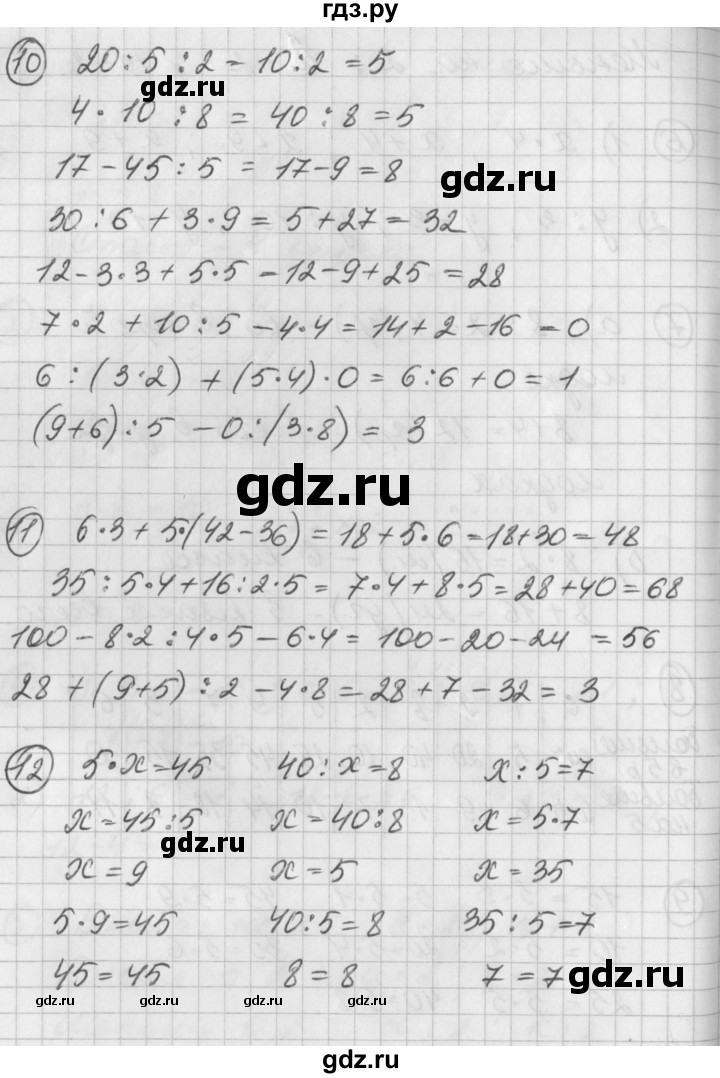 гдз.ру
10 20:5:2-10:2=5
gdz.ru
4·10:8=40:8=5
17-45:5=17-9=8
gdz.ru
30:6+3·9=5+27=32
12-3·3+5·5-12-9+25=28
7·2+10:5-4·4=14+2-16-0
6:(3·2)+(5·4)·0=6:6+0=1
(9+6):5-0:(3·8)=3
gdz.ru
11 6·3+5·(42-36)=18+5·6=18+30=48
35:5·4+16:2·5=7·4+8·5=28+40=68
100-8·2:4·5-6·4=100-20-24=56
28+(9+5):2-4·8=28+7-32=3
12 5·x=45 40:x=8 x:5=7
x=45:5 x=40:8 x=5·7
gdz.ru
x=9 x=5 x=35
5·9=45 40:5=8 35:5=7
45=45 8=8 7=7
gdz.ru
gdz.ru gdz.ru gdz.ru gdz.ru
gdz.ru